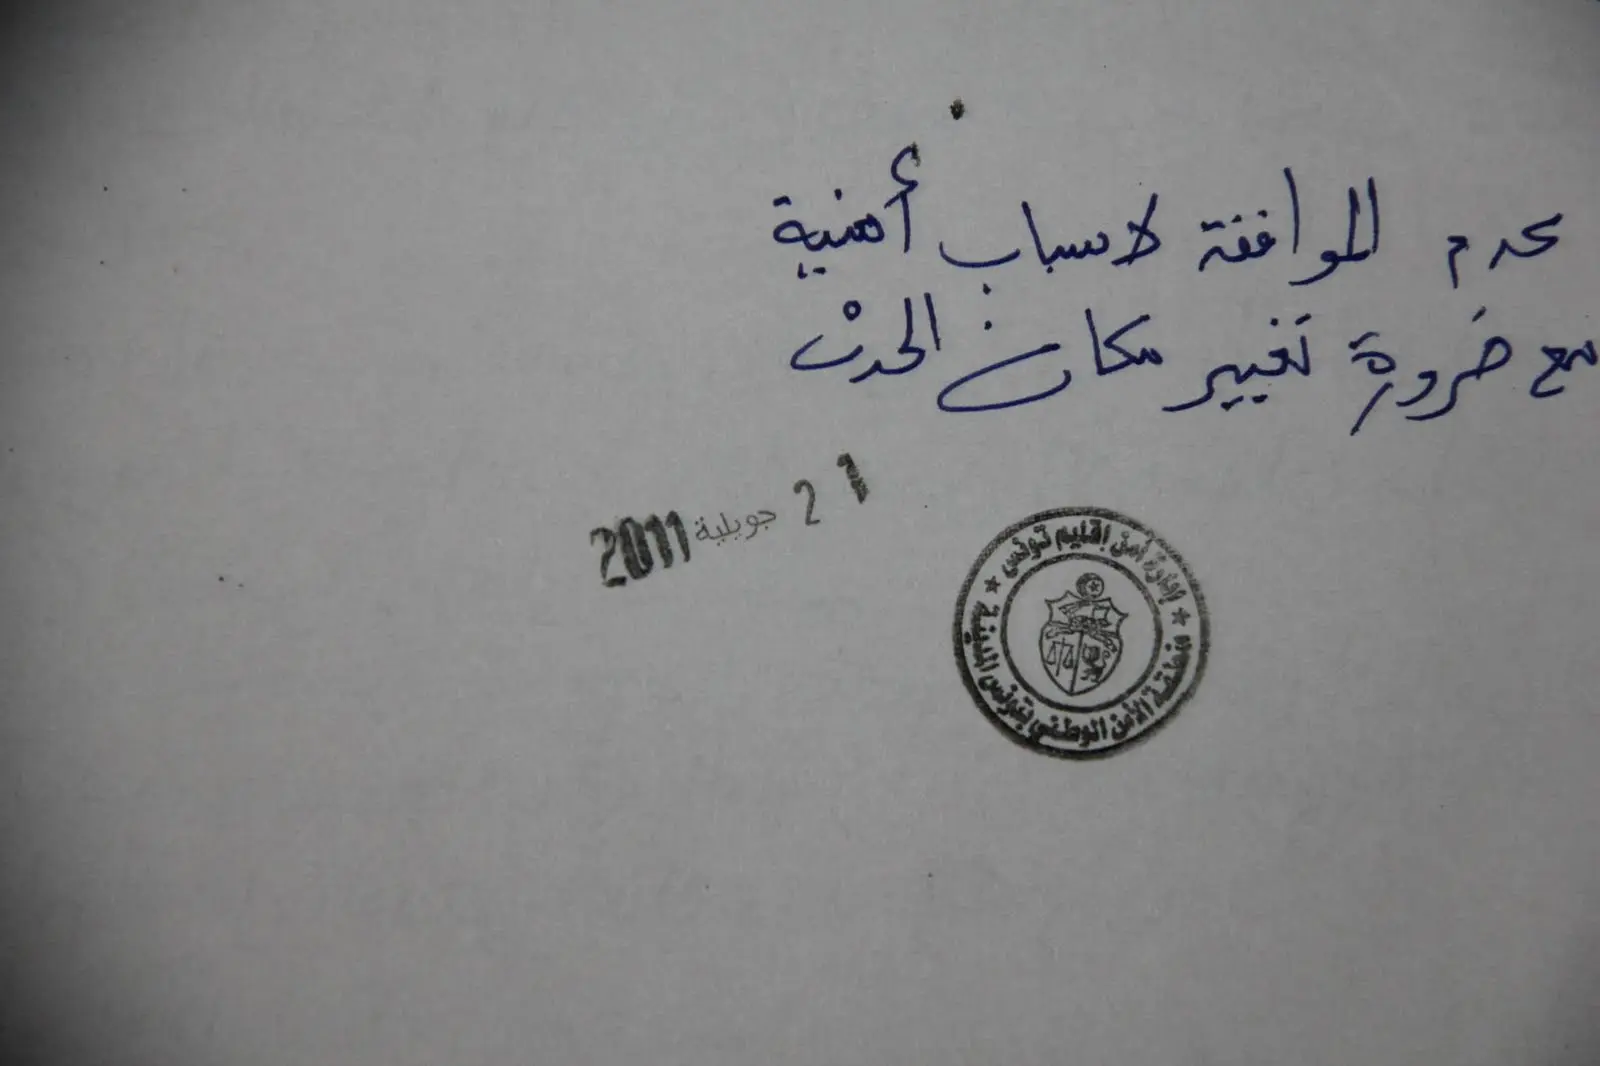 عدم الموافقة لاسباب أمنية
مع ضرورة تغيير مكان الحدث
2 1 جويلية 2011
إدارة أمن إقليم تونس
منطقة الأمن الوطني بتونس المدينة